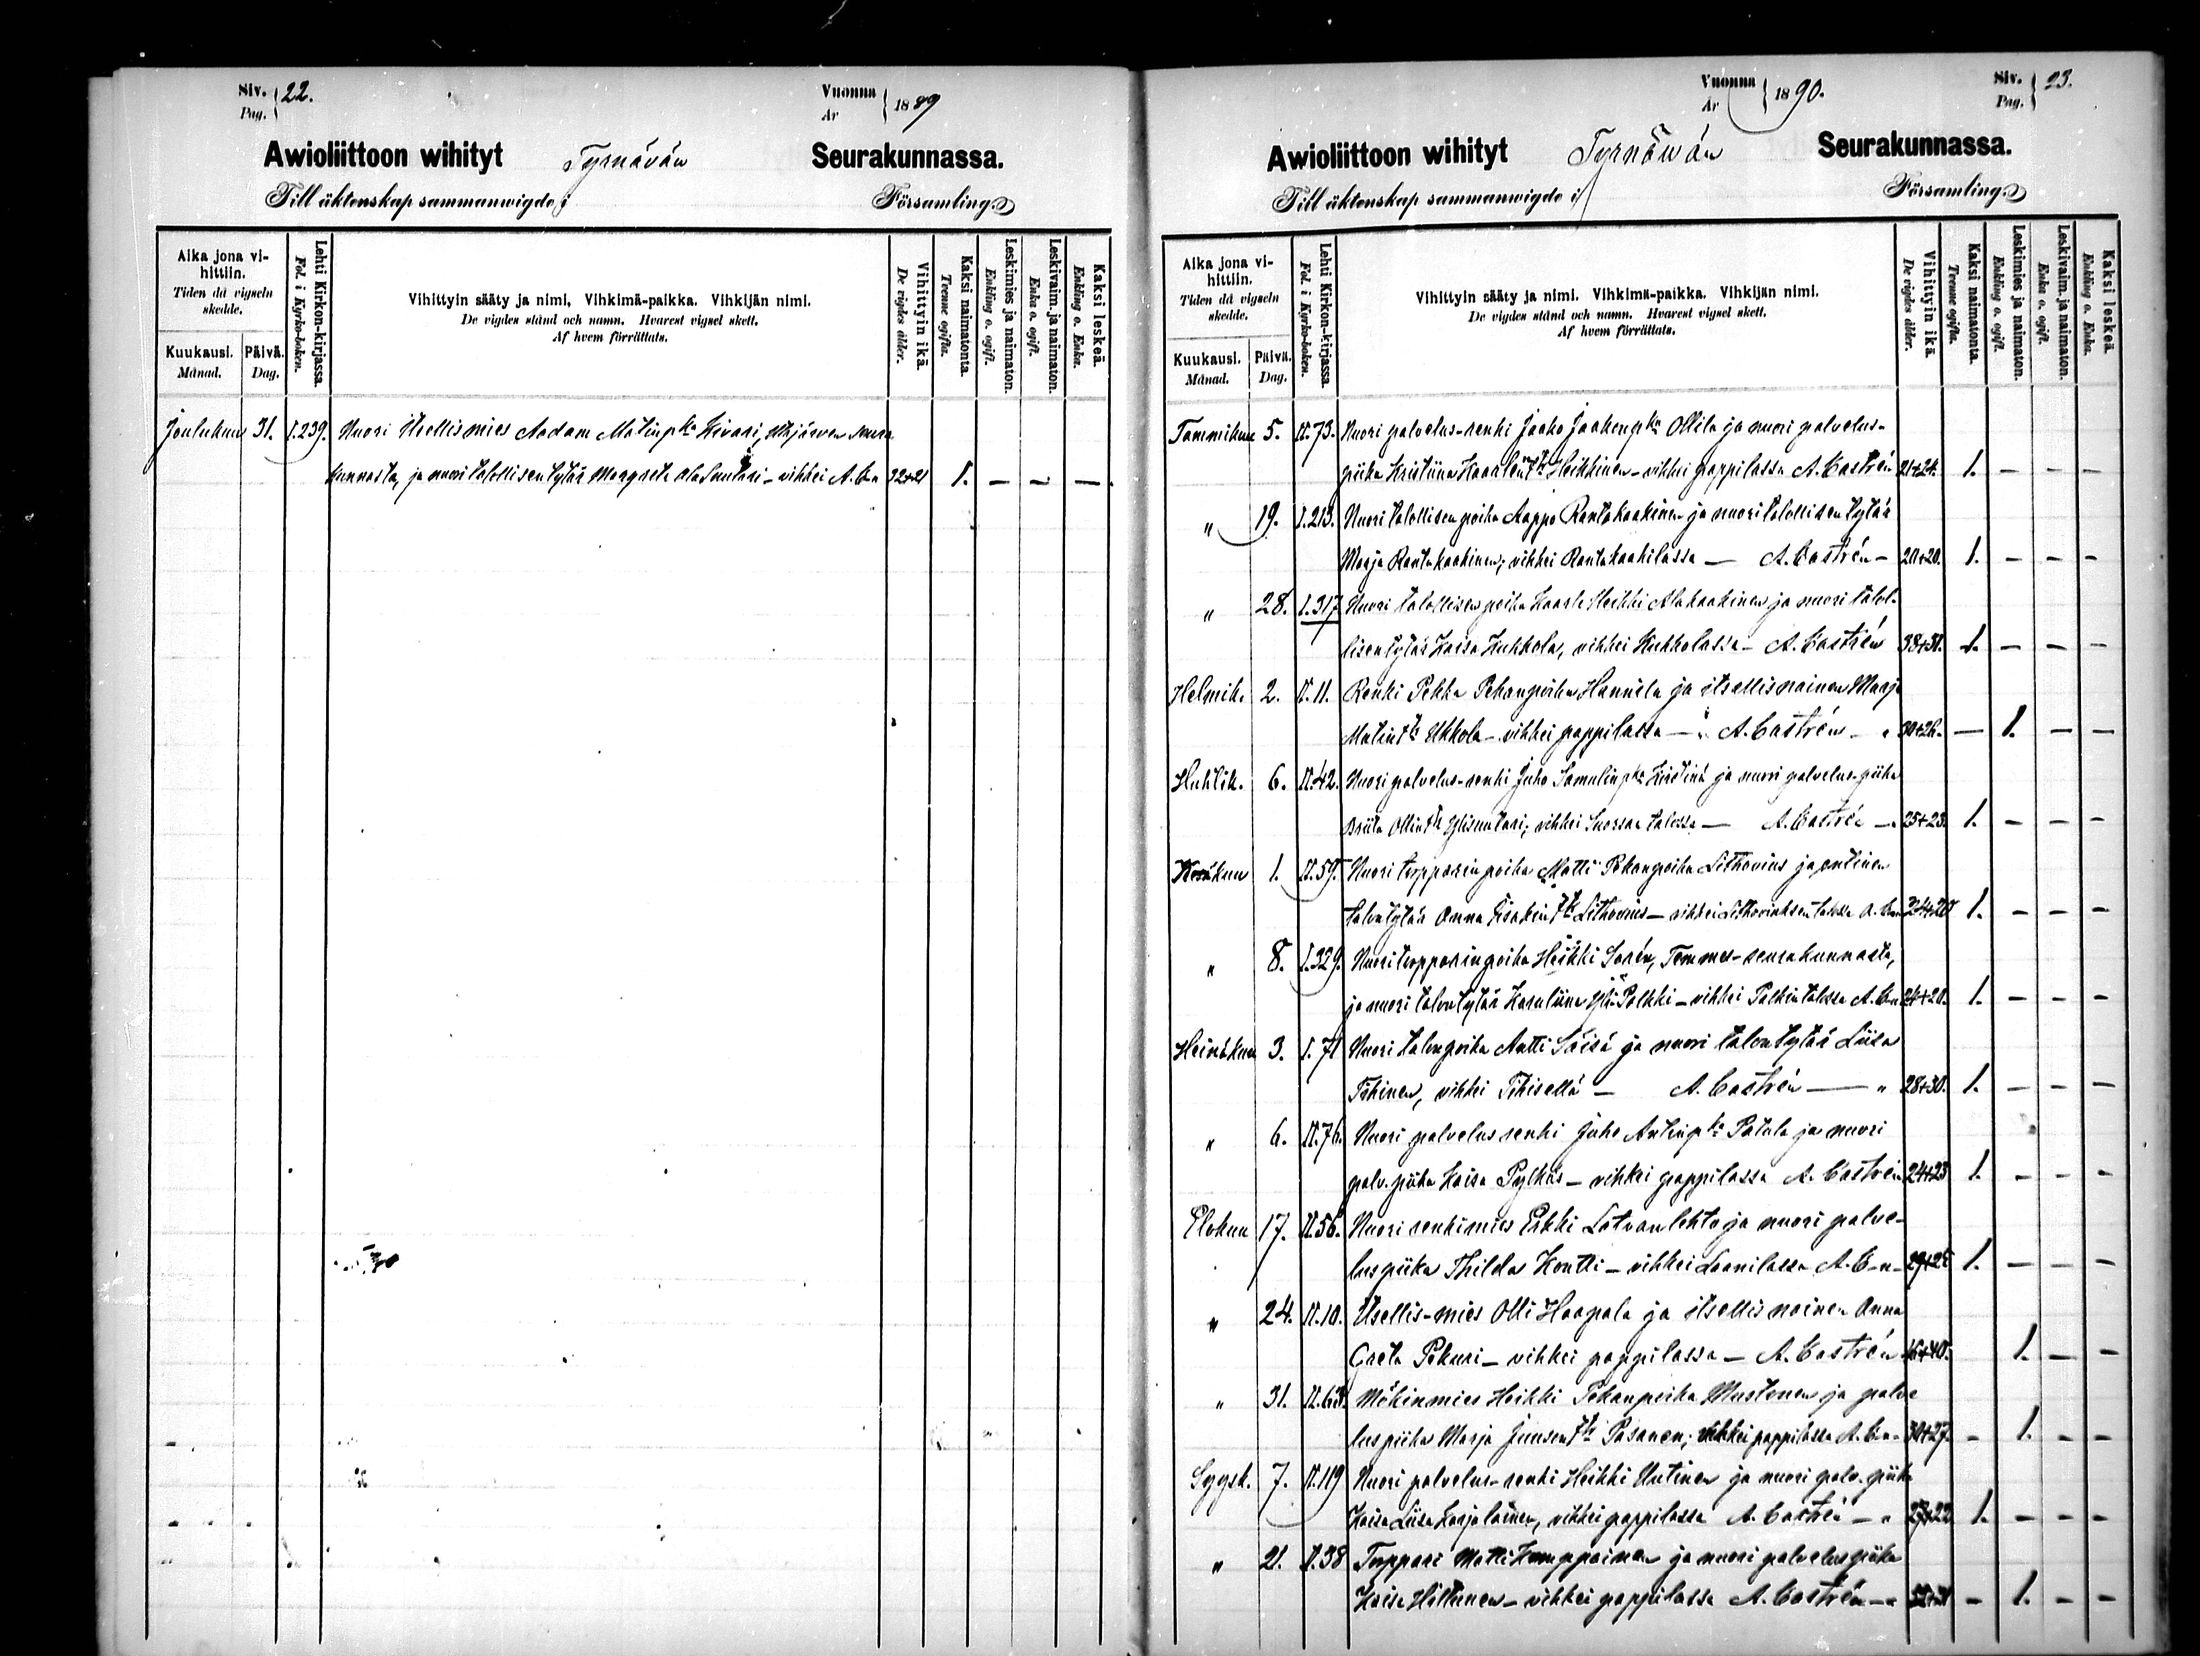 Siv. 22.
Pag.
Vuonna 1889
År
Awioliittoon wihityt Tyrnävän Seurakunnassa.
Till äktenskap sammanwigde i Församling.
Aika jona vihittiin.
Tiden då vigseln skedde.
Kuukausi. Månad.
Päivä. Dag.
Lehti Kirkon-kirjassa.
Fol. i Kyrko-boken.
Vihittyin sääty ja nimi. Vihkimä-paikka. Vihkijän nimi.
De vigdes stånd och namn. Hvarest vigsel skett.
Af hvem förrättats.
Vihittyin ikä.
De vigdes ålder.
Kaksi naimatonta.
Tvenne ogifta.
Leskimies ja naimaton.
Enkling o. ogift.
Leskivaim. ja naimaton.
Enka o. ogift.
Kaksi leskeä.
Enkling o. Enka.
Joulukuu 31. I.239. Nuori Itsellismies Aadam Matinpka Kivari, seura
kunnasta, ja nuori talollisentytär Margreta Alasuutari - vihkei A. C-n 32+21 1. — — —
Vuonna 1890.
År
Siv. 23.
Pag.
Awioliittoon wihityt Tyrnäwän Seurakunnassa.
Till äktenskap sammanwigde i Församling.
Aika jona vihittiin.
Tiden då vigseln skedde.
Kuukausi. Månad.
Päivä. Dag.
Lehti Kirkon-kirjassa.
Fol. i Kyrko-boken.
Vihittyin sääty ja nimi. Vihkimä-paikka. Vihkijän nimi.
De vigdes stånd och namn. Hvarest vigsel skett.
Af hvem förrättats.
Vihittyin ikä.
De vigdes ålder.
Kaksi naimatonta.
Tvenne ogifta.
Leskimies ja naimaton.
Enkling o. ogift.
Leskivaim. ja naimaton.
Enka o. ogift.
Kaksi leskeä.
Enkling o. Enka.
Tammikuu 5. II.73. Nuori palvelus-renki Jaako Jaakonpka Ollila ja nuori palvelus-
piika Kristiina Heikkinen - vihkei pappilassa A. Castrén 21+24. 1. — — —
" 19. I.213. Nuori talollisen poika Aappo Rantakaakinen ja nuori talollisen tytär
Marja Rantakaakinen; vihkei Rantakaakilassa — A. Castrén — 20+20. 1. — — —
" 28. I.317 Nuori talollisen poika Kaarle Heikki Alakaakinen ja nuori talol-
lisen tytär Kaisa Kukkola, vihkei Kukkolassa — A. Castrén 38+31. 1. — — —
Helmik. 2. II.11. Renki Pekka Pekanpoika Hannila ja itsellisnainen Marja
Matintr Ukkola - vihkei pappilassa — A. Castrén — 30+26. — 1. — —
Huhtik. 6. II.42. Nuori palvelus-renki Juho Samulinpka ja nuori palvelus-piika
Briita Ollintr Ylisuutari; vihkei Suorsan talossa — A. Castrén — 25+23. 1. — — —
Kesäkuu 1. II.59. Nuori torpparin poika Matti Pekanpoika Lithovius ja entinen
talontytär Anna Iisakintr Lithovius — vihkei Lithoviuksen talossa A. C-n 24+20 1. — — —
" 8. I.329. Nuori torpparin poika Heikki Sarén, Temmes-seurakunnasta,
ja nuori talontytär Karuliina Yli-Palkki — vihkei Palkin talossa A. C-n 24+20. 1. — — —
Heinäkuu 3. I.71 Nuori talonpoika Antti Säisä ja nuori talontytär Liisa
Tihinen, vihkei Tihisellä — A. Castrén — " 28+30. 1. — — —
" 6. II.76. Nuori palvelus renki Juho Antinpka Patala ja nuori
palv. piika Kaisa Pylkäs — vihkei pappilassa A. Castrén 24+23 1. — — —
Elokuu 17. II.56. Nuori renkimies Erkki Latvanlehto ja nuori palve-
luspiika Thilda Kontti — vihkei Laanilassa A. C-n — 29+25 1. — — —
" 24. II.10. Itsellis-mies Olli Haapala ja itsellisnainen Anna
Greta Pekuri — vihkei pappilassa — A. Castrén 46+40. 1. — —
" 31. II.63. Mökinmies Heikki Pekanpoika Mustonen ja palve
luspiika Marja Juusontr Pasanen; vihkei pappilassa A. C-n- 30+27. — 1. — —
Syysk. 7. II.119 Nuori palvelus-renki Heikki Uutinen ja nuori palv. piika
Kaisa Liisa Karjalainen, vihkei pappilassa A. Castrén — " 27+22 1. — — —
" 21. II.38 Torppari Matti Kumppainen ja nuori palveluspiika
Kaisa Hiltunen — vihkei pappilassa A. Castrén — — 1. — —